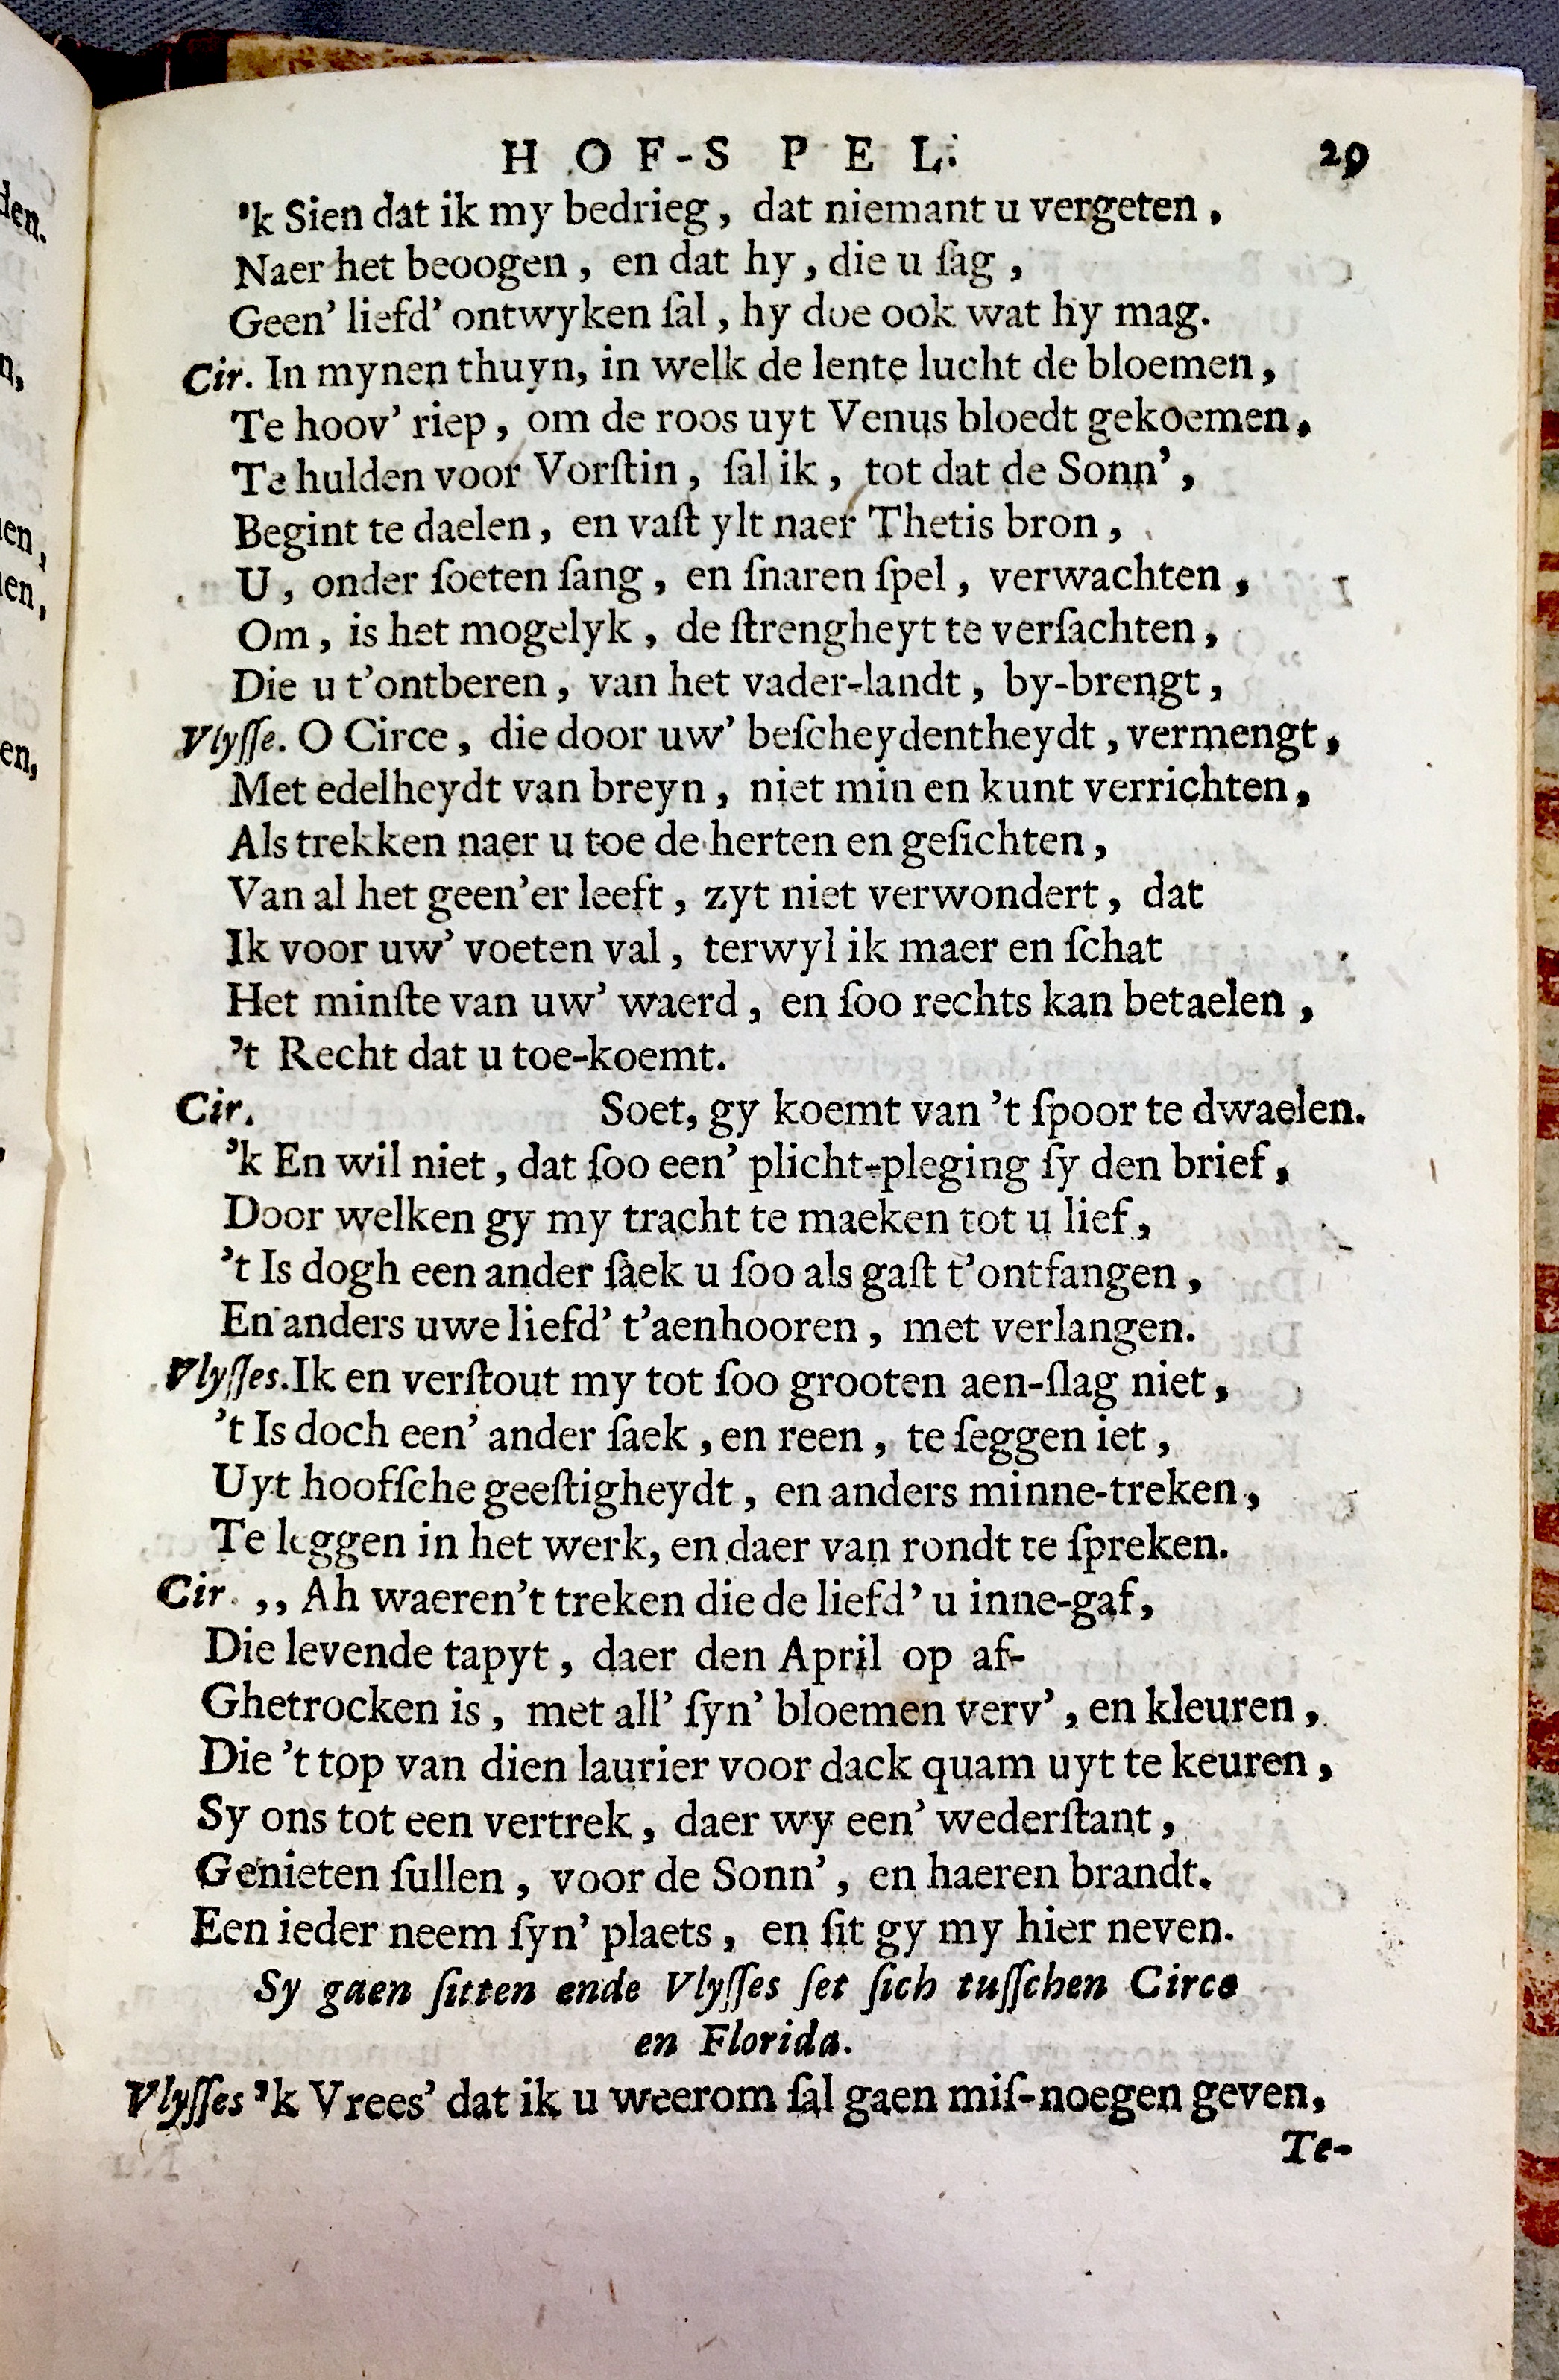 HOF-SPEL. 29
'k Sien dat ik my bedrieg, dat niemant u vergeten,
Naer het beoogen, en dat hy, die u ſag,
Geen' liefd' ontwyken ſal, hy doe ook wat hy mag.
Cir. In mynen thuyn, in welk de lente lucht de bloemen,
Te hoov' riep, om de roos uyt Venus bloedt gekoemen,
Te hulden voor Vorſtin, ſal ik, tot dat de Sonn',
Begint te daelen, en vaſt ylt naer Thetis bron,
U, onder ſoeten ſang, en ſnaren ſpel, verwachten,
Om, is het mogelyk, de ſtrengheyt te verſachten,
Die u t'ontberen, van het vader-landt, by-brengt,
Vlyſſe. O Circe, die door uw' beſcheydentheydt, vermengt,
Met edelheydt van breyn, niet min en kunt verrichten,
Als trekken naer u toe de herten en geſichten,
Van al het geen'er leeft, zyt niet verwondert, dat
Ik voor uw' voeten val, terwyl ik maer en ſchat
Het minſte van uw' waerd, en ſoo rechts kan betaelen,
't Recht dat u toe-koemt.
Cir. Soet, gy koemt van 't ſpoor te dwaelen.
'k En wil niet, dat ſoo een' plicht-pleging ſy den brief,
Door welken gy my tracht te maeken tot u lief,
't Is dogh een ander ſaek u ſoo als gaſt t'ontfangen,
En anders uwe liefd' t'aenhooren, met verlangen.
Vlyſſes. Ik en verſtout my tot ſoo grooten aen-ſlag niet,
't Is doch een' ander ſaek, en reen, te ſeggen iet,
Uyt hoofſche geeſtigheydt, en anders minne-treken,
Te leggen in het werk, en daer van rondt te ſpreken.
Cir. ,, Ah waeren't treken die de liefd' u inne-gaf,
Die levende tapyt, daer den April op af-
Ghetrocken is, met all' ſyn' bloemen verv', en kleuren,
Die 't top van dien laurier voor dack quam uyt te keuren,
Sy ons tot een vertrek, daer wy een' wederſtant,
Genieten ſullen, voor de Sonn', en haeren brandt.
Een ieder neem ſyn' plaets, en ſit gy my hier neven.
Sy gaen ſitten ende Vlyſſes ſet ſich tuſſchen Circe
en Florida.
Vlyſſes 'k Vrees' dat ik u weerom ſal gaen miſ-noegen geven,
Te-